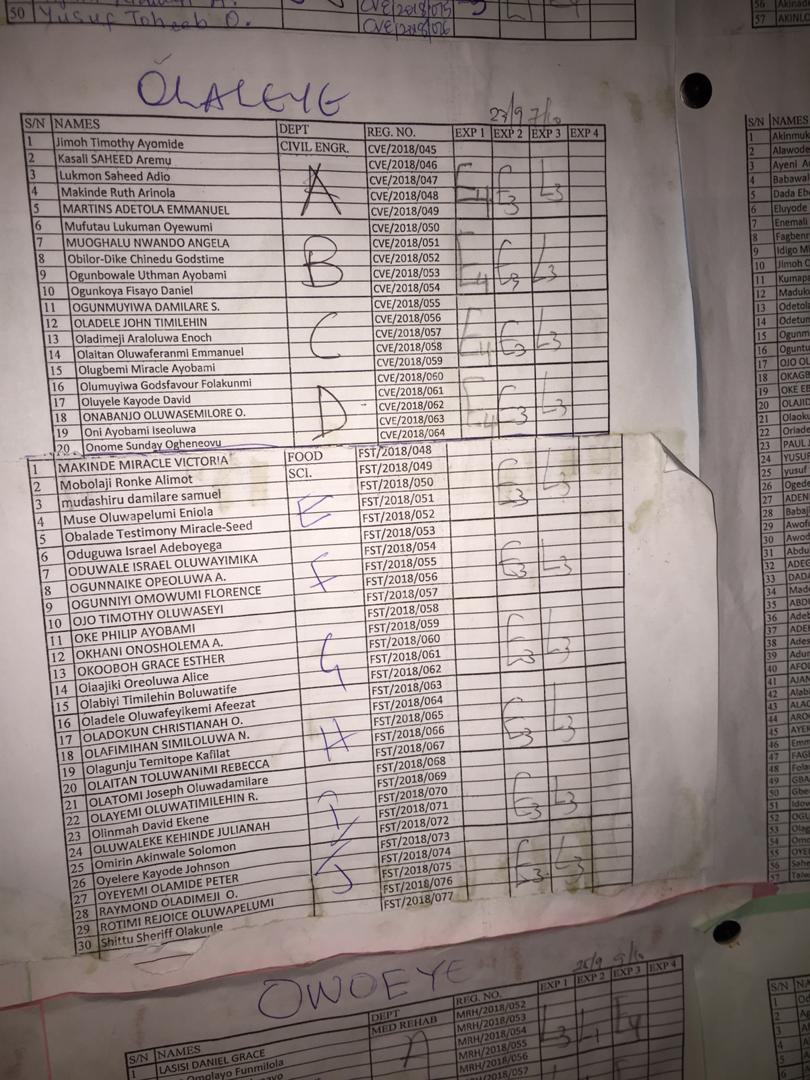 50 Yusuf Toheeb O. CVE/2018/075
CVE/2018/076
OLALEYE
23/9 7/10
S/N NAMES DEPT REG. NO. EXP 1 EXP 2 EXP 3 EXP 4
1 Jimoh Timothy Ayomide CIVIL ENGR. CVE/2018/045
2 Kasali SAHEED Aremu CVE/2018/046
3 Lukmon Saheed Adio A CVE/2018/047 E4 E3 L3
4 Makinde Ruth Arinola CVE/2018/048
5 MARTINS ADETOLA EMMANUEL CVE/2018/049
6 Mufutau Lukuman Oyewumi CVE/2018/050
7 MUOGHALU NWANDO ANGELA CVE/2018/051
8 Obilor-Dike Chinedu Godstime B CVE/2018/052 E4 E3 L3
9 Ogunbowale Uthman Ayobami CVE/2018/053
10 Ogunkoya Fisayo Daniel CVE/2018/054
11 OGUNMUYIWA DAMILARE S. CVE/2018/055
12 OLADELE JOHN TIMILEHIN CVE/2018/056
13 Oladimeji Araloluwa Enoch C CVE/2018/057 E4 E3 L3
14 Olaitan Oluwaferanmi Emmanuel CVE/2018/058
15 Olugbemi Miracle Ayobami CVE/2018/059
16 Olumuyiwa Godsfavour Folakunmi CVE/2018/060
17 Oluyele Kayode David CVE/2018/061
18 ONABANJO OLUWASEMILORE O. D CVE/2018/062 E4 E3 L3
19 Oni Ayobami Iseoluwa CVE/2018/063
20 Onome Sunday Ogheneovu CVE/2018/064
1 MAKINDE MIRACLE VICTORIA FOOD FST/2018/048
2 Mobolaji Ronke Alimot SCI. FST/2018/049
3 mudashiru damilare samuel FST/2018/050 E3 L3
4 Muse Oluwapelumi Eniola E FST/2018/051
5 Obalade Testimony Miracle-Seed FST/2018/052
6 Oduguwa Israel Adeboyega FST/2018/053
7 ODUWALE ISRAEL OLUWAYIMIKA FST/2018/054
8 OGUNNAIKE OPEOLUWA A. F FST/2018/055 E3 L3
9 OGUNNIYI OMOWUMI FLORENCE FST/2018/056
10 OJO TIMOTHY OLUWASEYI FST/2018/057
11 OKE PHILIP AYOBAMI FST/2018/058
12 OKHANI ONOSHOLEMA A. FST/2018/059
13 OKOOBOH GRACE ESTHER G FST/2018/060 E3 L3
14 Olaajiki Oreoluwa Alice FST/2018/061
15 Olabiyi Timilehin Boluwatife FST/2018/062
16 Oladele Oluwafeyikemi Afeezat FST/2018/063
17 OLADOKUN CHRISTIANAH O. FST/2018/064
18 OLAFIMIHAN SIMILOLUWA N. H FST/2018/065 E3 L3
19 Olagunju Temitope Kafilat FST/2018/066
20 OLAITAN TOLUWANIMI REBECCA FST/2018/067
21 OLATOMI Joseph Oluwadamilare FST/2018/068
22 OLAYEMI OLUWATIMILEHIN R. FST/2018/069
23 Olinmah David Ekene I FST/2018/070 E3 L3
24 OLUWALEKE KEHINDE JULIANAH FST/2018/071
25 Omirin Akinwale Solomon FST/2018/072
26 Oyelere Kayode Johnson FST/2018/073
27 OYEYEMI OLAMIDE PETER J FST/2018/074 E3 L3
28 RAYMOND OLADIMEJI O. FST/2018/075
29 ROTIMI REJOICE OLUWAPELUMI FST/2018/076
30 Shittu Sheriff Olakunle FST/2018/077
OWOEYE
S/N NAMES DEPT REG. NO. EXP 1 EXP 2 EXP 3 EXP 4
1 LASISI DANIEL GRACE MED REHAB MRH/2018/052
Funmilola A MRH/2018/053 L3 L4 E4
MRH/2018/054
MRH/2018/055
MRH/2018/056
57
S/N NAMES
1
2 Alawode
3 Ayeni
4 Babawal
5 Dada
6 Eluyode
7 Enemali
8
9 Idigo
10 Jimoh
11
12 Maduk
13
14
15
16
17 OJO
18
19 OKE
20
21
22
23 PAUL
24 YUSUF
25 yusuf
26
27
28
29
30
31
32
33
34
35
36
37
38
39
40
41
42
43
44
45
46
47
48
49
50
51
52
53
54
55
56
57
S/N
1
2
3
4
5